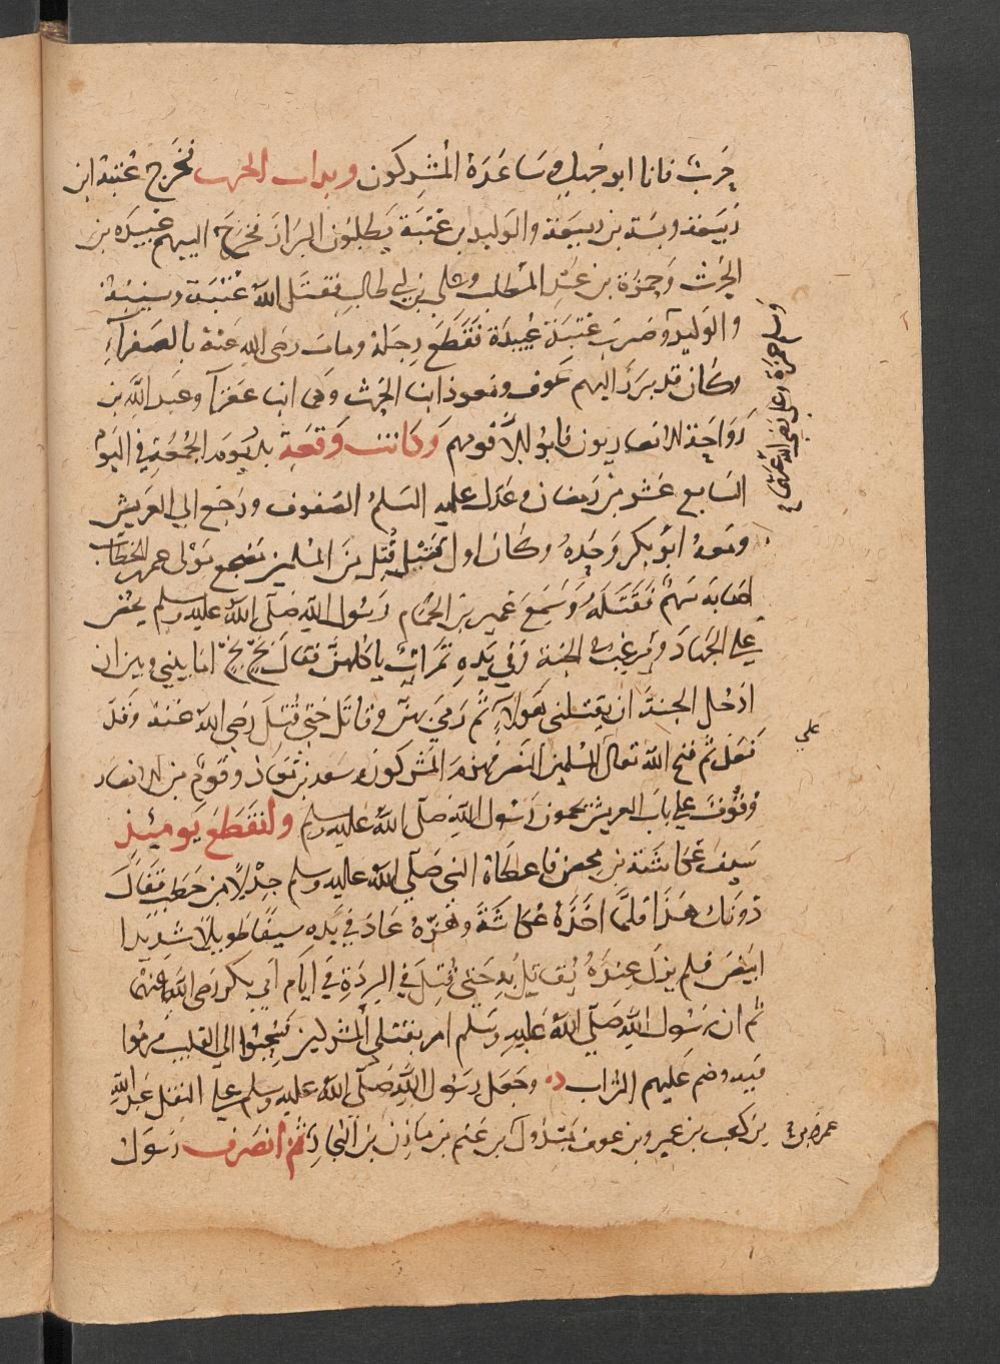 حرب فابا ابو جهل وساعده المشركون وبدات الحرب فخرج عُتبة ابن
ربيعة وشيبة بن ربيعة والوليد بن عُتبَة يَطلبُون البراز فخرجَ اليهم عُبيدَه بن
الحرث وحمزة بن عَبْد المطلب وعلي بن ابي طالب فقتل الله عُتبَة وشيبة
والوليد وضرب عتبة عُبيدَة فقطع رِجلهُ ومات رضى الله عنهُ بالصفرآءِ
وكان قد برز اليهم عوف ومعوذ ابنا الحرث وهما ابنا عفرآ وعبد الله بن
رواحة الانصاريون فابوا الا قومهم وكانت وقعة بدر يومَ الجمُعَة في اليَوم
السَابع عشر من رمضان وعدل عليه السلم الصفوف ورجع الى العريش
ومعهُ ابُو بكر وحدهُ وكان اول قتيل قُتِل من المسلمين مهجع مولى عمر بن الخطاب
اصابه سهمٌ فقتله وسَمعَ عُمير بن الحُمام رسُول الله صَلَّى اللهُ عليه وسلم يحض
على الجهاد ويرغب في الجنة وفي يَدِهِ تمرات ياكلهن فقال بَخٍّ بَخٍّ اما بيني وبين ان
ادخل الجنة ان يقتلنى هَولآءِ ثم رمى بهنَّ وقاتَل حتى قُتِلَ رضي اللهُ عنهُ وفعل
ففعل ثم فتح الله تعال المسلمين النصر فهزم المشركون وسعد بن مُعَاذ وقومٌ من الانصار
وُقوُف على باب العريش يحمون رَسُول اللهِ صَلى اللهُ عَليه وسلم وانقَطع يَوميئذ
سَيف عُكاشة بن محصن فاعطاهُ النبي صَلى الله عليه وسلم جِذْلًا من حَطب فقال
دونك هذا فلمَّا اخذهُ عُكاشة وهزّهُ عادَ في يَدِهِ سيفًا طويلًا شديدًا
ابيَض فلم يزل عندهُ يُقاتِل بهِ حتى قُتِلَ في الردة في ايام ابي بكر رضى الله عنهما
ثم ان رَسُول الله صَلَّى اللهُ عَليهِ وسَلم امر بقتلى المشركين فسُحِبُوا الى القليب فرمُوا
فيه وضم عليهم التراب وجَعل رسُول الله صَلَّى اللهُ عليه وسلم على النفل عبد الله
بن كعب بن عمير وبن عوف مبذول بن غنم بن مازن بن النجار ثم انصرف رسول
وسلم حمزة وعلى رضى الله عنهما
على
عمرو بن